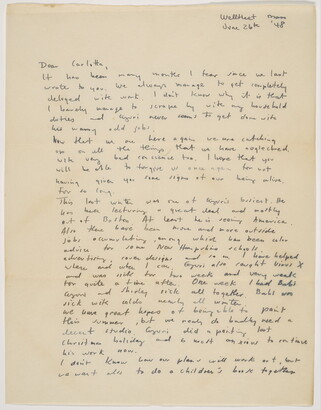 Wellfleet Mass
June 26th '48
Dear Carlotta,
It has been many months I fear since we last
wrote to you. We always manage to get completely
deluged with work. I don't know why it is that
I barely manage to scrape by with my household
duties and Gyuri never seems to get done with
his many odd jobs.
Now that we are here again we are catching
up on all the things that we have neglected.
with very bad conscience too. I hope that you
will be able to forgive us once again for not
having given you some signs of our being alive
for so long.
This last winter was one of Gyuri's busiest. He
has been lecturing a great deal and mostly
out of Boston. At least he is seeing America.
Also there have been more and more outside
jobs accumulating, among which has been color
advice for some New Hampshire schools,
advertising, cover designs and so on. I have helped
where and when I can. Gyuri also caught Virus X
and was sick for two weeks and very weak
for quite a time after. One week I had
Gyuri and sick all together.
sick with colds nearly all winter.
We have great hopes of being able to paint
this summer, but we really do badly need a
decent studio. Gyuri did a painting last
Christmas holiday and is most anxious to continue
his work now.
I don't know how our plans will work out, but
we want also to do a children's book together